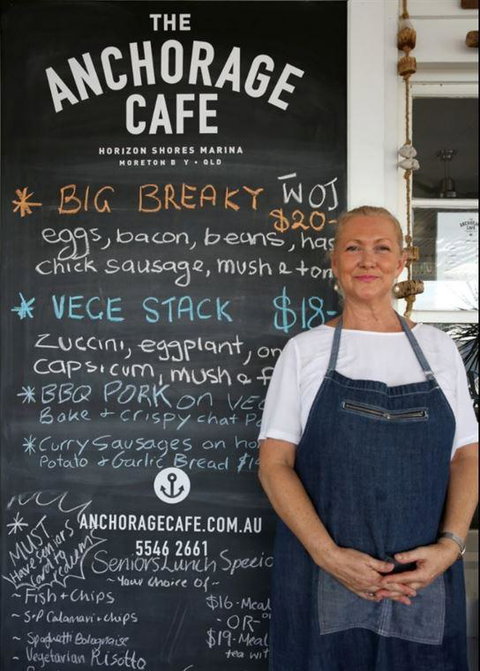 THE
ANCHORAGE
CAFE
HORIZON SHORES MARINA
MORETON B Y • QLD
* BIG BREAKY WOJ
$20-
eggs, bacon, beans, has
chick sausage, mush & tom
* VEGE STACK $18-
Zuccini, eggplant, on
capsicum, mush & f
* BBQ PORK on VEG
Bake & crispy chat Po
* Curry Sausages on ho
Potato & Garlic Bread $1
ANCHORAGECAFE.COM.AU
5546 2661
* MUST
Have seniors
card to
redeem
Seniors Lunch Specia
~ Your choice of ~
~ Fish + Chips
~ S+P Calamari + chips
~ Spaghetti Bolognaise
~ Vegetarian Risotto
$16- Meal
- OR -
$19- Meal
tea wit
ANCHORAGE